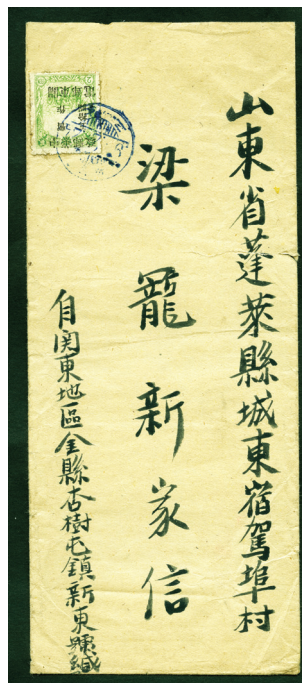 山東省蓬萊縣城東宿駕埠村
梁寵新家信
自関東地區金縣杏樹屯鎮新東號緘